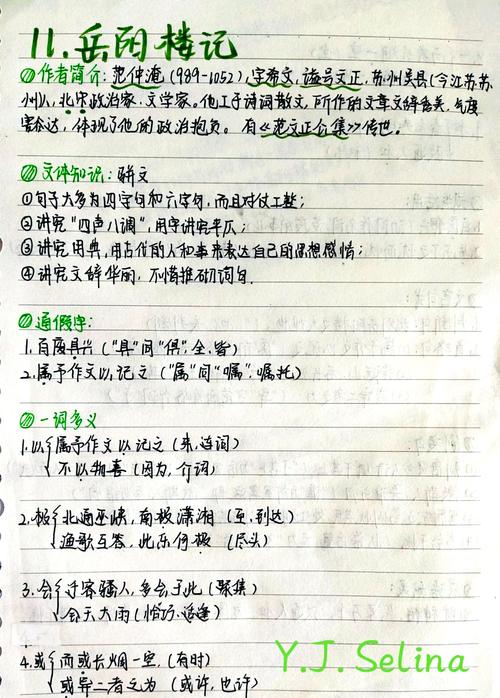 11.岳阳楼记
作者简介:范仲淹(989-1052),字希文,谥号文正,苏州吴县(今江苏苏
州)人,北宋政治家、文学家。他工于诗词散文,所作的文章文辞秀美,气度
豁达,体现了他的政治抱负。有《范文正公集》传世。
文体知识:骈文
①句子大多为四字句和六字句,而且对仗工整;
②讲究“四声八调”,用字讲究平瓜;
③讲究用典,用古代的人和事来表达自己的思想感情;
④讲究文辞华丽,不惜堆砌词句.
通假字:
1.百废具兴("具"同"俱",全,皆)
2.属予作文以记之("属"同"嘱",嘱托)
一词多义
1.以 属予作文以记之(来,连词)
不以物喜(因为,介词)
2.极 北通巫峡,南极潇湘(至,到达)
渔歌互答,此乐何极(尽头)
3.会 迁客骚人,多会于此(聚集)
会天大雨(恰巧,适逢)
4.或 而或长烟一空,(有时)
或异二者之为(或许,也许)
Y.J. Selina